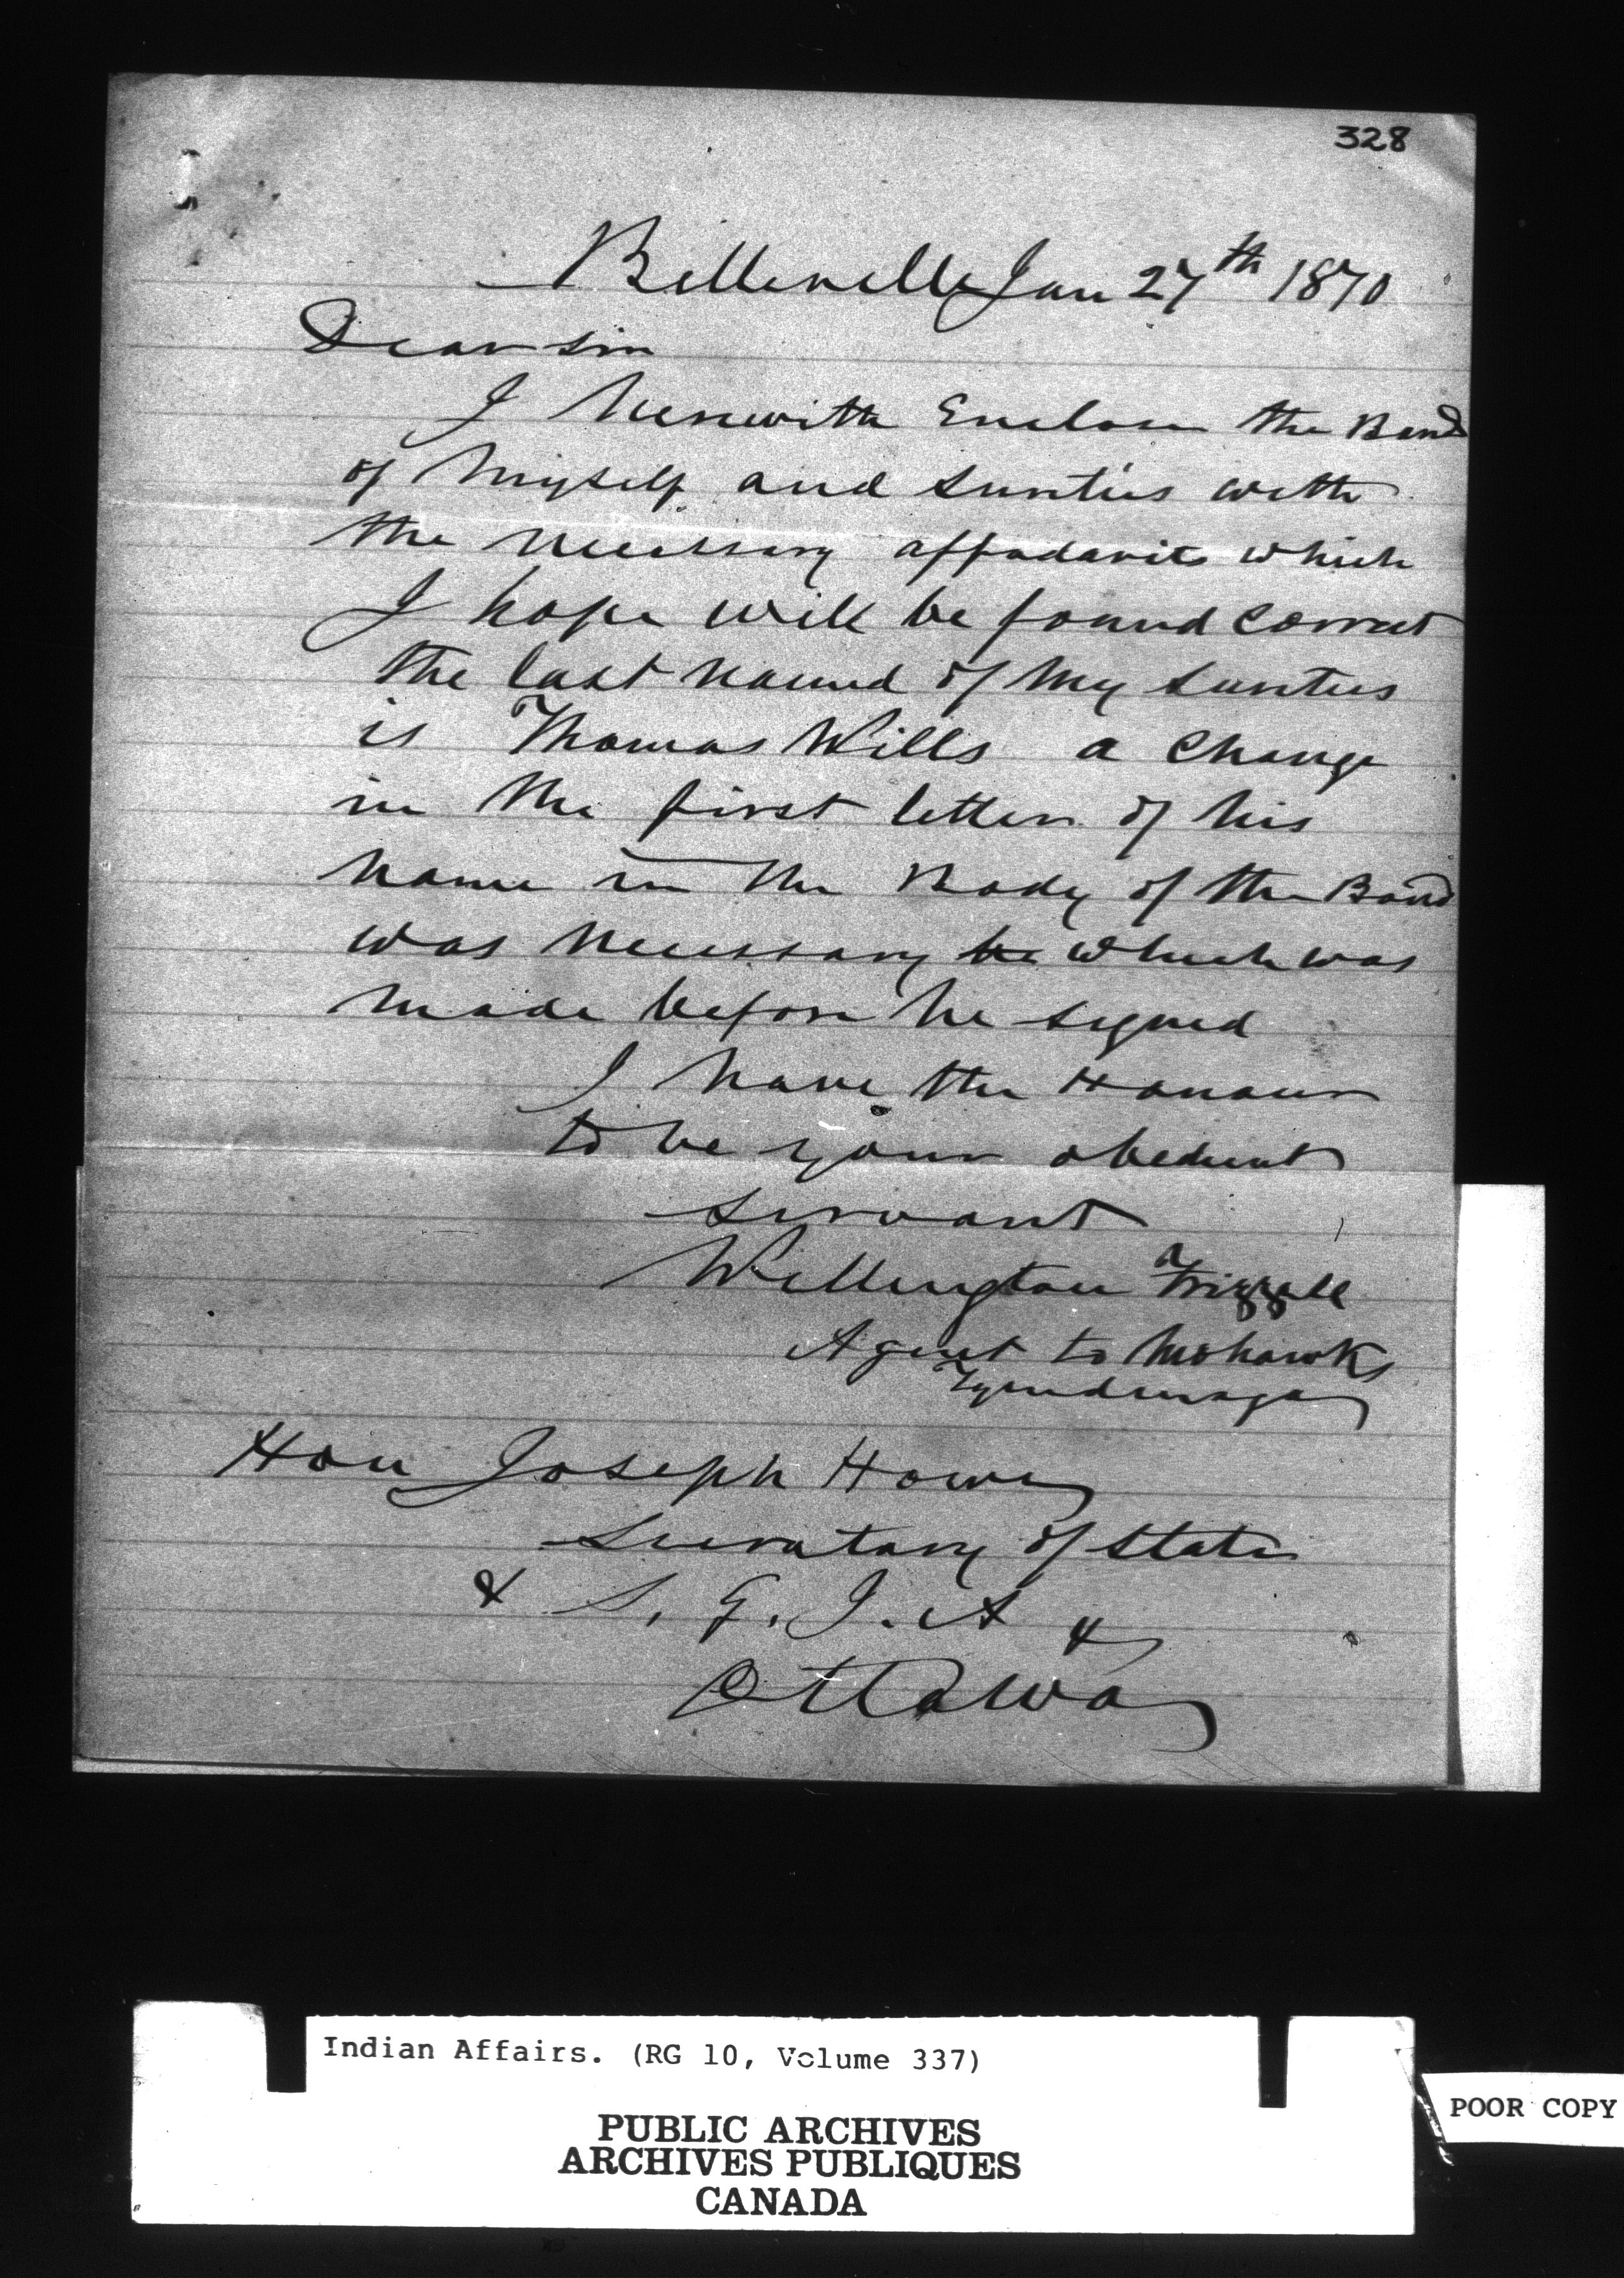 328
Belleville Jan 27th 1870
Dear Sir
I herewith Enclose the Bond
of Myself and Sureties with
the necessary affadavits which
I hope will be found Correct
the last named of My Sureties
is Thomas Wills a Change
in the first letter of his
name in the Body of the Bond
was necessary be which was
made before he signed
I have the Honour
to be your obedient
servant
Wellington Frizzell
Agent to Mohawks
Tyendinaga
Hon Joseph Howe
Secretary of State
& S. G. I. A &
Ottawa
Indian Affairs. (RG 10, Volume 337)
PUBLIC ARCHIVES
ARCHIVES PUBLIQUES
CANADA
POOR COPY